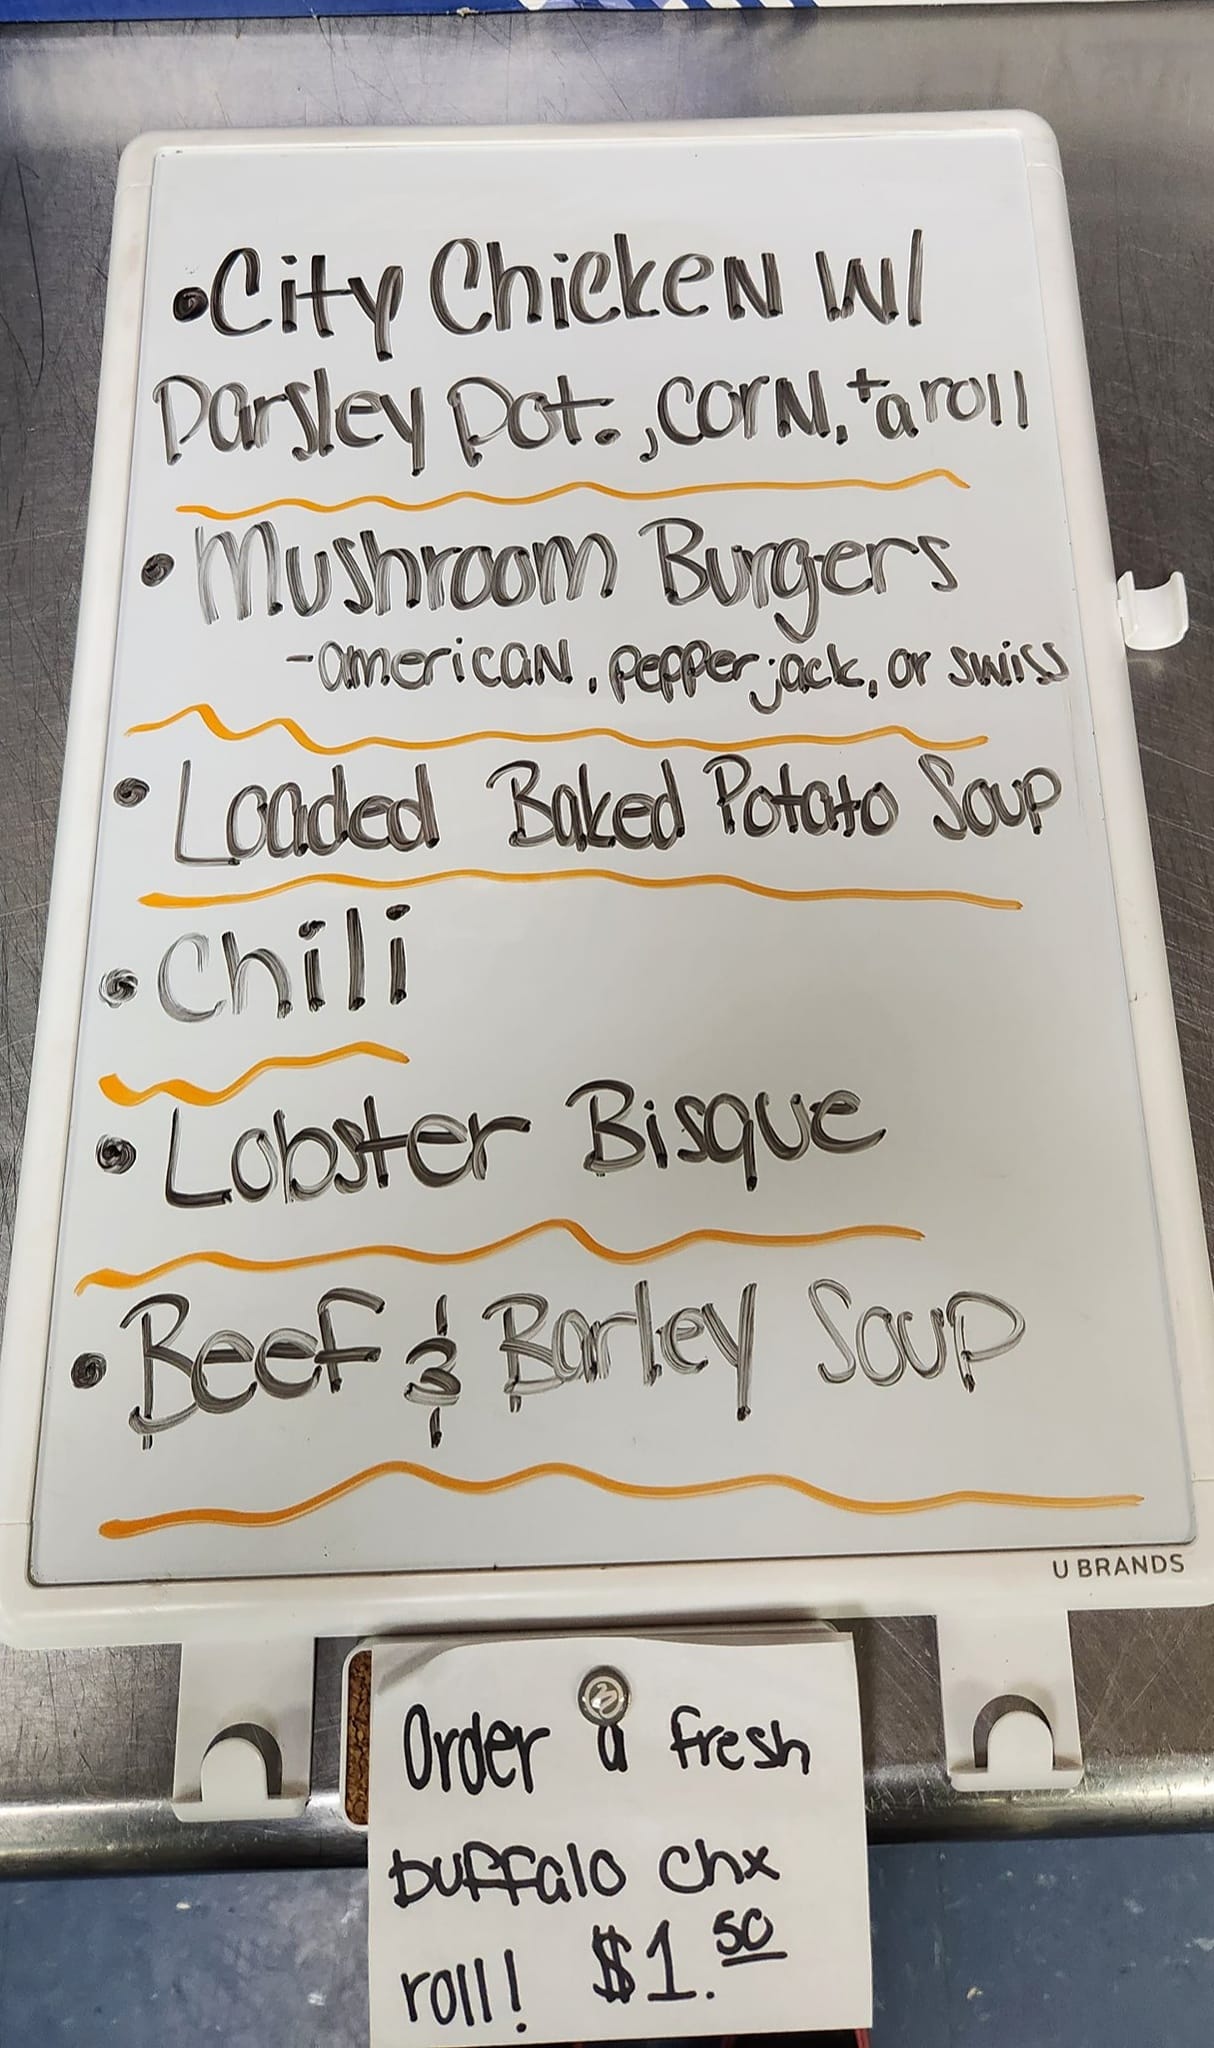 •City Chicken W/
Parsley Pot., corn, + a roll
• Mushroom Burgers
-american, pepper jack, or swiss
• Loaded Baked Potato Soup
• Chili
• Lobster Bisque
• Beef & Barley Soup
U BRANDS
Order a fresh
buffalo chx
roll! $1.50